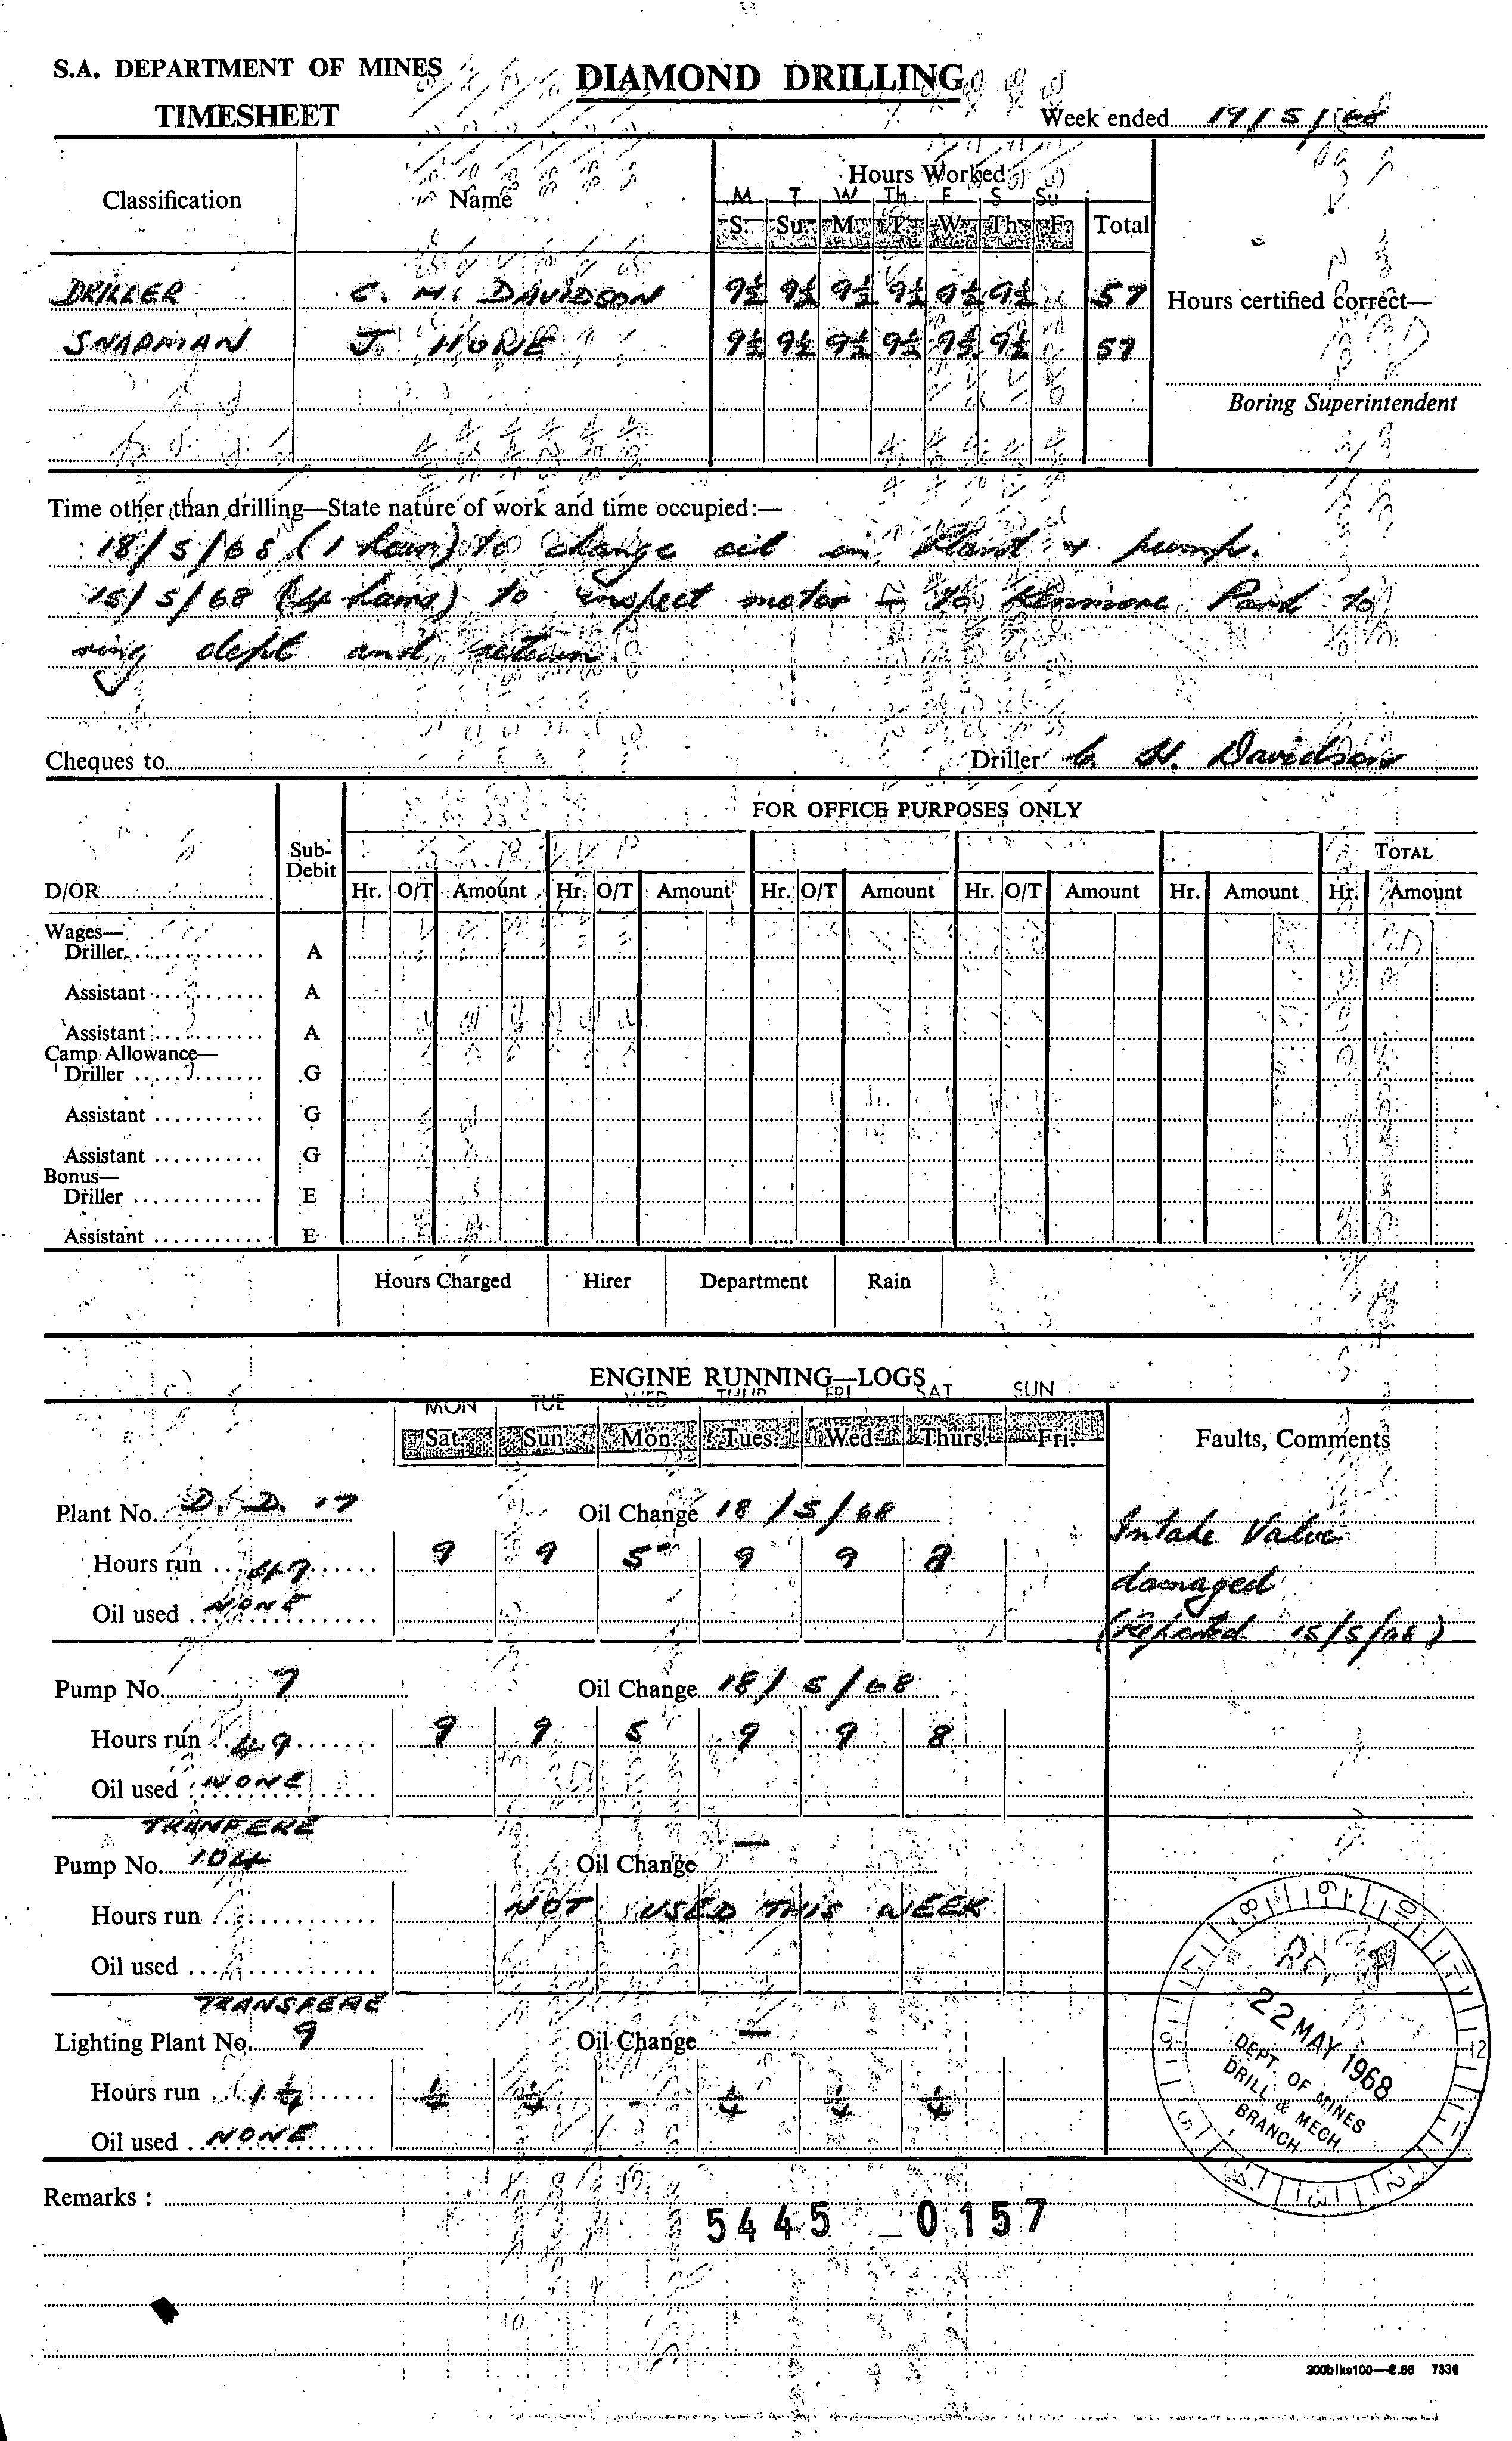 S.A. DEPARTMENT OF MINES
DIAMOND DRILLING
TIMESHEET
Week ended 19/5/68
Classification Name Hours Worked
M T W Th F S Su
S. Su. M. T. W. Th. F. Total
DRILLER C. H. DAVIDSON 9½ 9½ 9½ 9½ 9½ 9½ 57
Hours certified correct—
J. HORE 9½ 9½ 9½ 9½ 9½ 9½ 57
Boring Superintendent
Time other than drilling—State nature of work and time occupied:—
18/5/68 (1 hour) to change oil on Plant & pump.
15/5/68 (4 hours) to inspect motor & to Kenmore Park to
ring dept and return.
Cheques to Driller C H. Davidson
FOR OFFICE PURPOSES ONLY
Sub-Debit TOTAL
D/OR Hr. O/T Amount Hr. O/T Amount Hr. O/T Amount Hr. O/T Amount Hr. Amount Hr. Amount
Wages—
Driller A
Assistant A
Assistant A
Camp Allowance—
Driller G
Assistant G
Assistant G
Bonus—
Driller E
Assistant E
Hours Charged Hirer Department Rain
ENGINE RUNNING—LOGS
MON TUE WED THUR FRI SAT SUN
Sat. Sun. Mon. Tues. Wed. Thurs. Fri. Faults, Comments
Plant No. D. D. 17 Oil Change 18/5/68
Intake Valve
Hours run 49 9 9 5 9 9 8
damaged
Oil used NONE
(Reported 15/5/68)
Pump No. 7 Oil Change 18/5/68
Hours run 49 9 9 5 9 9 8
Oil used NONE
TRANFERE
Pump No. 104 Oil Change —
Hours run NOT USED THIS WEEK
Oil used
TRANSFERE
Lighting Plant No. 9 Oil Change —
Hours run 1¼ ¼ ¼ - ¼ ¼ ¼
Oil used NONE
22 MAY 1968
DEPT. OF MINES
DRILL. & MECH.
BRANCH
Remarks :
5445 0157
200blks100—2.66 7336